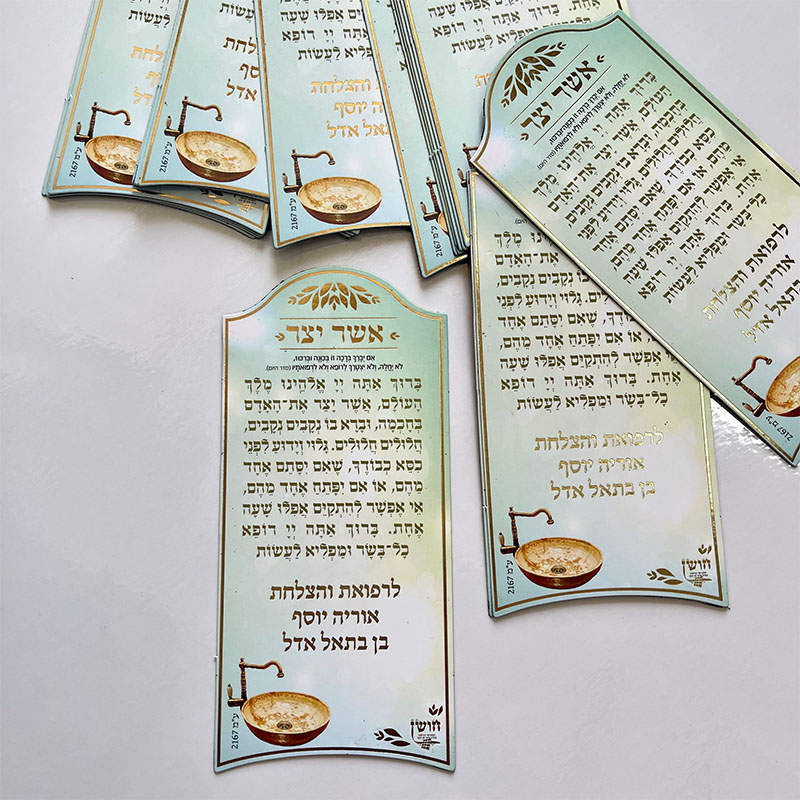 אשר יצר
אם יברך ברכה זו בכוונה וברכוז,
לא יחלה, ולא יצטרך לרופא ולא לרפואתיו (סדר היום).
בָּרוּךְ אַתָּה יְיָ אֱלֹהֵינוּ מֶלֶךְ
הָעוֹלָם, אֲשֶׁר יָצַר אֶת־הָאָדָם
בְּחָכְמָה, וּבָרָא בוֹ נְקָבִים נְקָבִים,
חֲלוּלִים חֲלוּלִים. גָּלוּי וְיָדוּעַ לִפְנֵי
כִסֵּא כְבוֹדֶךָ, שֶׁאִם יִסָּתֵם אֶחָד
מֵהֶם, אוֹ אִם יִפָּתֵחַ אֶחָד מֵהֶם,
אִי אֶפְשָׁר לְהִתְקַיֵּם אֲפִלּוּ שָׁעָה
אֶחָת. בָּרוּךְ אַתָּה יְיָ רוֹפֵא
כָל־בָּשָׂר וּמַפְלִיא לַעֲשׂוֹת
לרפואת והצלחת
אוריה יוסף
בן בתאל אדל
ע"מ 2167
חושן